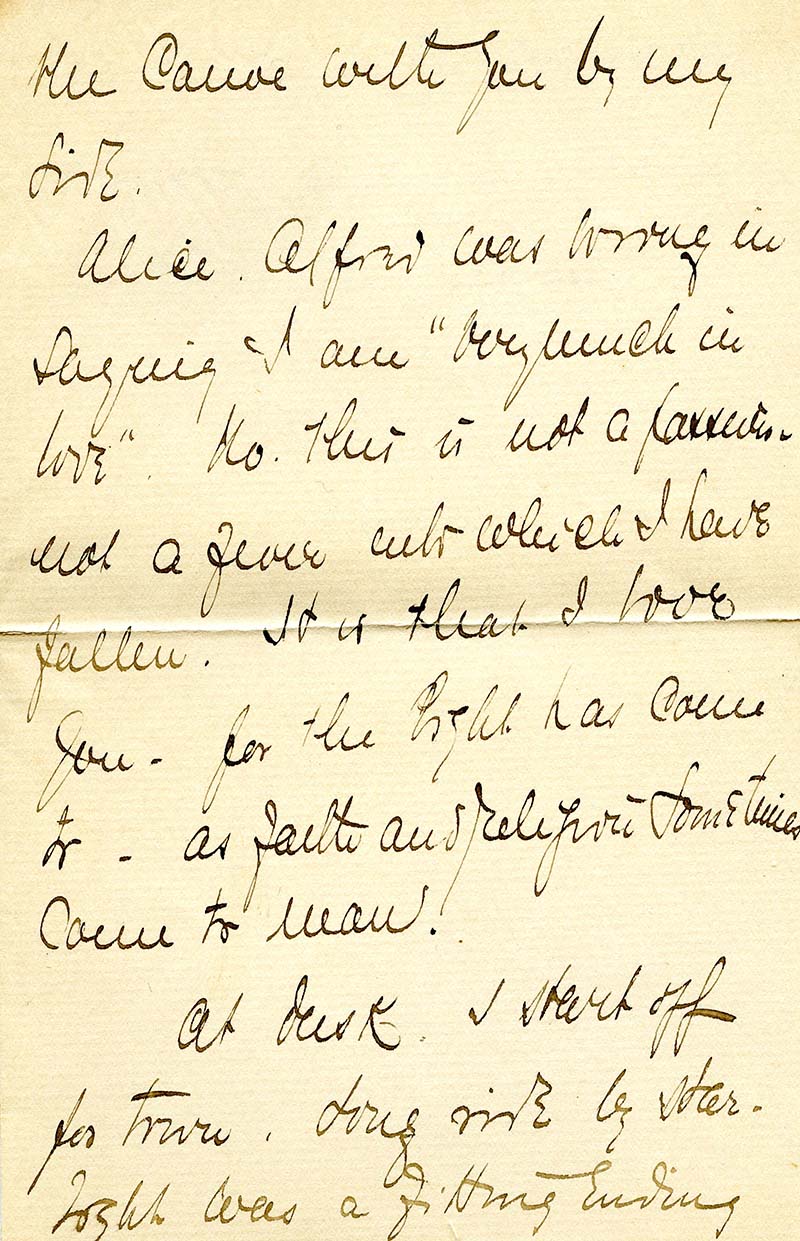 the Canoe with you by my
side.
Alice. Alfred was wrong in
saying "I am "very much in
love". No. this is not a passion-
not a fever into which I have
fallen. It is that I love
you - for the light has come
to - as faith and religion sometimes
come to man.
At dusk. I start off
for town. Long ride by star-
light was a fitting ending